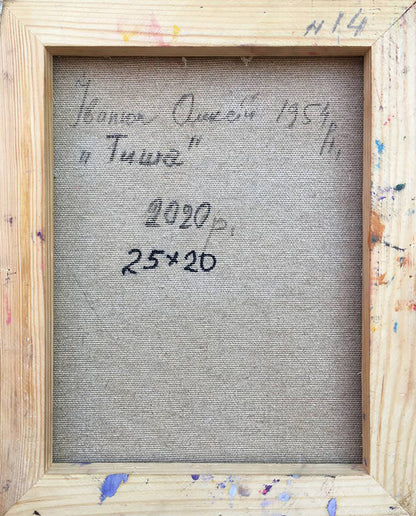 н 14
Іванюк Олексій 1954
р.
„Тиша"
2020 р.
25×20